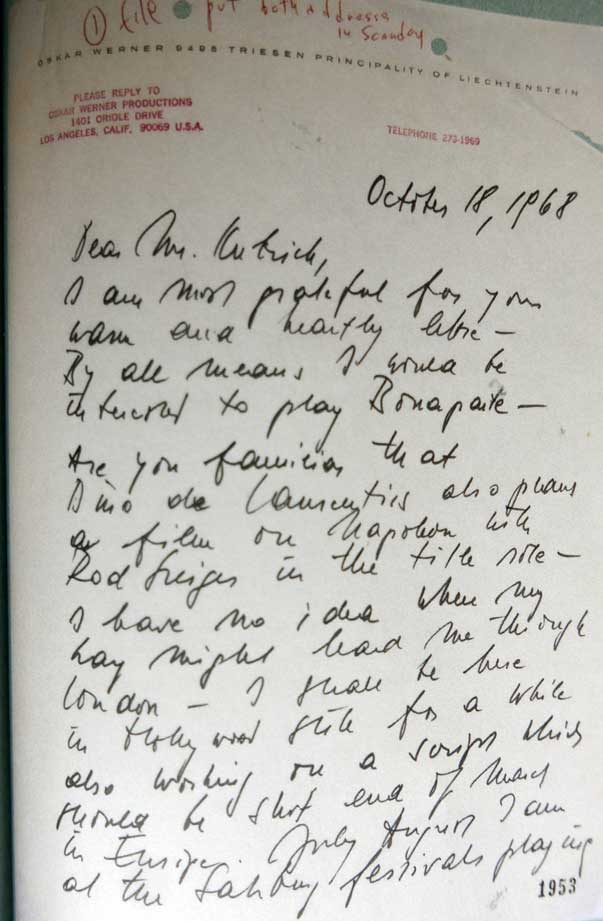 ① file • put both addresses
in Scanday
OSKAR WERNER 9495 TRIESEN PRINCIPALITY OF LIECHTENSTEIN
PLEASE REPLY TO
OSKAR WERNER PRODUCTIONS
1401 ORIOLE DRIVE
LOS ANGELES, CALIF. 90069 U.S.A.
TELEPHONE 273-1969
October 18, 1968
Dear Mr. Kubrick,
I am most grateful for your
warm and heartly letter –
By all means I would be
interested to play Bonaparte –
Are you familiar that
Dino de Laurentiis also plans
a film on Napoleon with
Rod Steiger in the title role –
I have no idea when my
way might lead me through
London – I shall be here
in Hollywood still for a while
also working on a script which
should be shot end of March
in Europe. July August I am
at the Salzburg festivals playing
1953